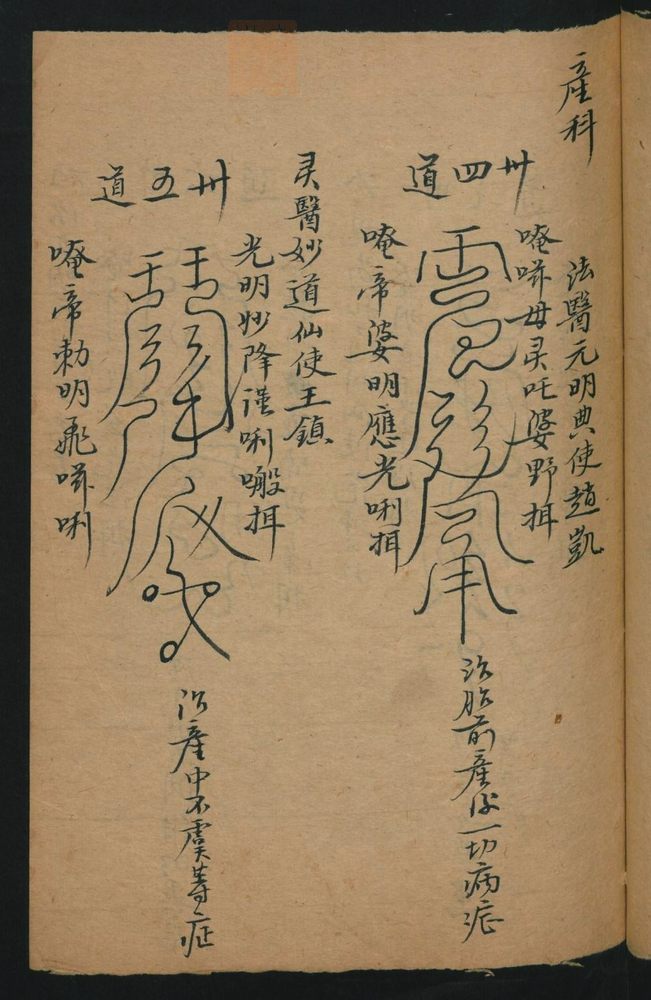 產科
卅四道
法醫元明典使趙凱
唵㗭母灵吒婆野揖
唵帝婆明應光唎揖
治胎前產後一切病症
灵醫妙道仙使王鎮
卅五道
光明妙降謹唎囉揖
唵帝勅明飛㗭唎
治產中不虞等症